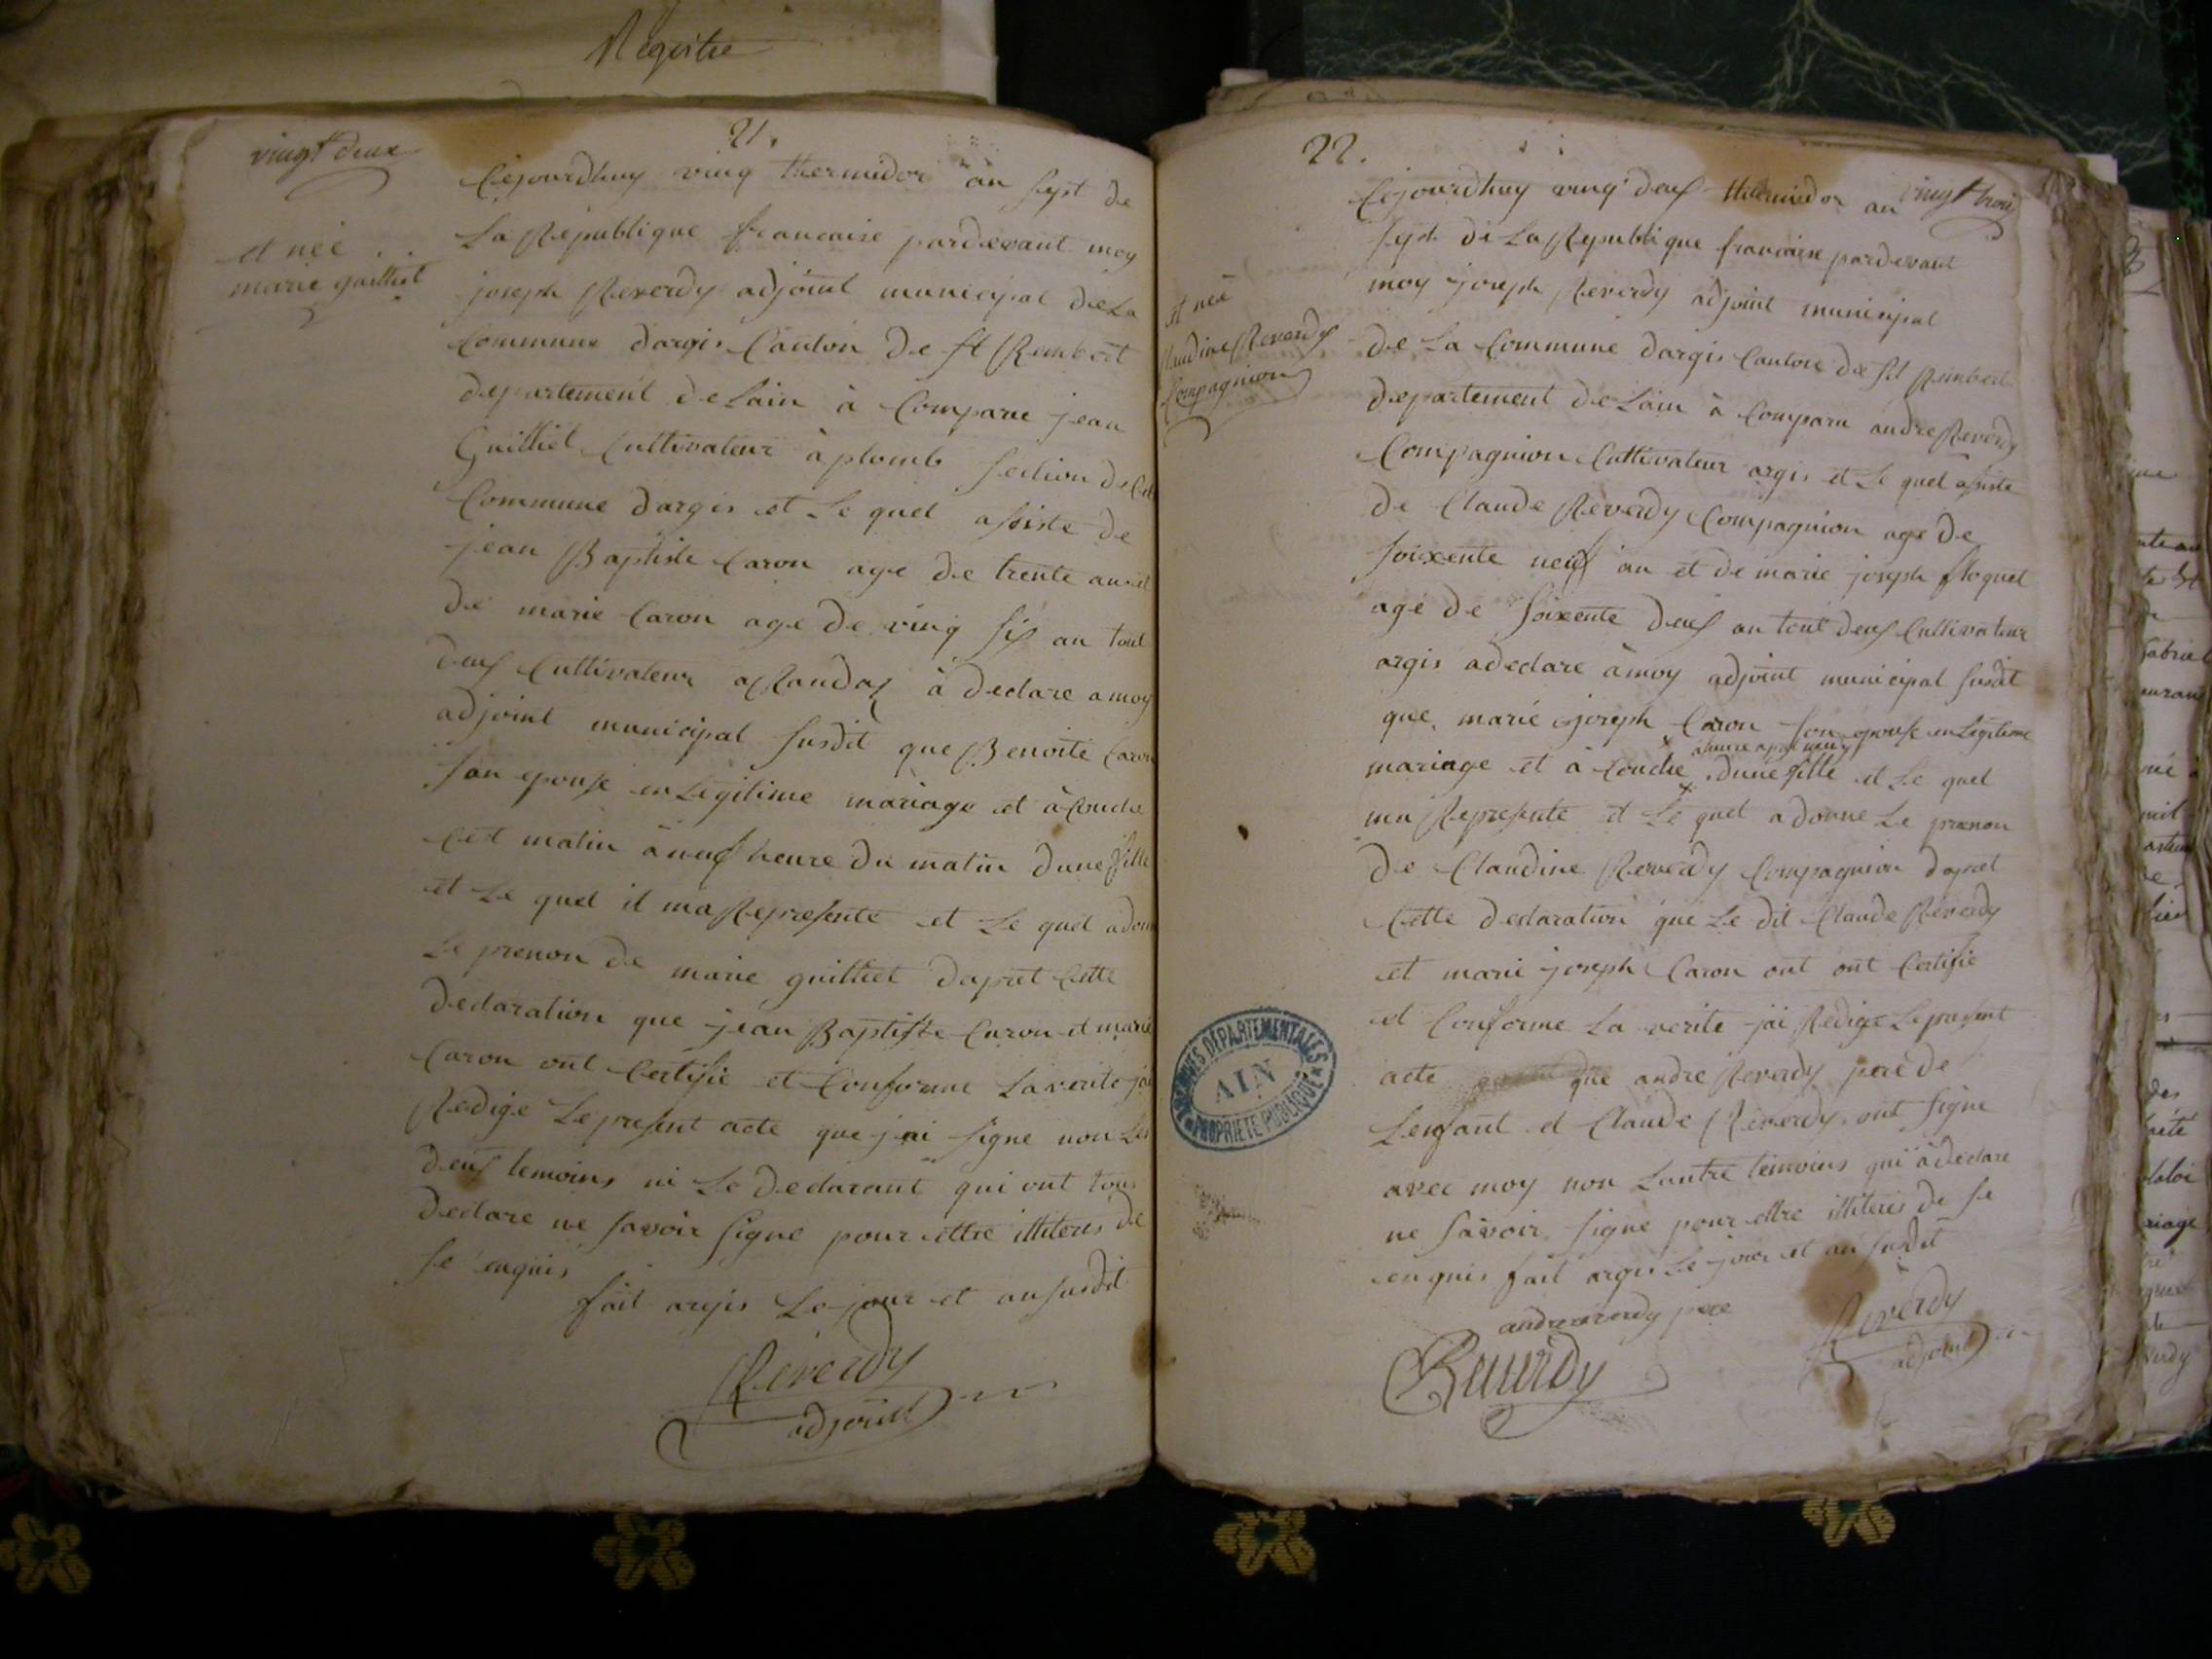 Registre
vingt deux
21.
et née
marie guilliet
Cejourdhuy ving thermidor an sept de
La Republique francaise pardevant moy
joseph Reverdy adjoint municipal de La
Commune dargis Canton de st Rembert
departement de Lain à Comparu jean
Guilliet Cultivateur à plomb section de
Commune dargis et Le quel assiste de
jean Baptiste Caron age de trente an et
de marie Caron age de ving six an tout
deux Cultivateur à declare a moy
adjoint municipal susdit que Benoite Caron
son epouse en Legitime mariage et à Couche
Cet matin à neuf heure du matin dune fille
et Le quel il ma Represente et Le quel a donne
Le prenon de marie guilliet dapret Cette
declaration que jean Baptiste Caron et marie
Caron ont Certifie et Conforme La verite jai
Redige Le present acte que jai signe non Les
deux temoins ni Le declarant qui ont tous
declare ne savoir signe pour ettre illiteres de
se enquis
fait argis Le jour et an susdit
Reverdy
adjoint
22.
vingt trois
et née
Claudine Reverdy
Compagnion
Cejourdhuy ving deux thermidor an
sept de La Republique francaise pardevant
moy joseph Reverdy adjoint municipal
de La Commune dargis Canton de st Rembert
departement de Lain à Comparu andre Reverdy
Compagnion Cultivateur argis et Le quel assiste
de Claude Reverdy Compagnion age de
soixente neuf an et de marie joseph floquet
age de soixente deux an tout deux Cultivateur
argis a declare à moy adjoint municipal susdit
que marie joseph Caron son epouse en Legitime
mariage et à Couche dune fille et Le quel
ma Represente et Le quel a donne Le prenon
de Claudine Reverdy Compagnion dapret
Cette declaration que Le dit Claude Reverdy
et marie joseph Caron ont ont Certifie
et Conforme La verite jai Redige Le present
acte que andre Reverdy pere de
Lenfant et Claude Reverdy ont signe
avec moy non Lautre temoins qui a declare
ne savoir signe pour ettre illiteres de se
enquis fait argis Le jour et an susdit
andre reverdy pere
Reverdy
Reverdy
adjoint
ARCHIVES DÉPARTEMENTALES
AIN
PROPRIÉTÉ PUBLIQUE